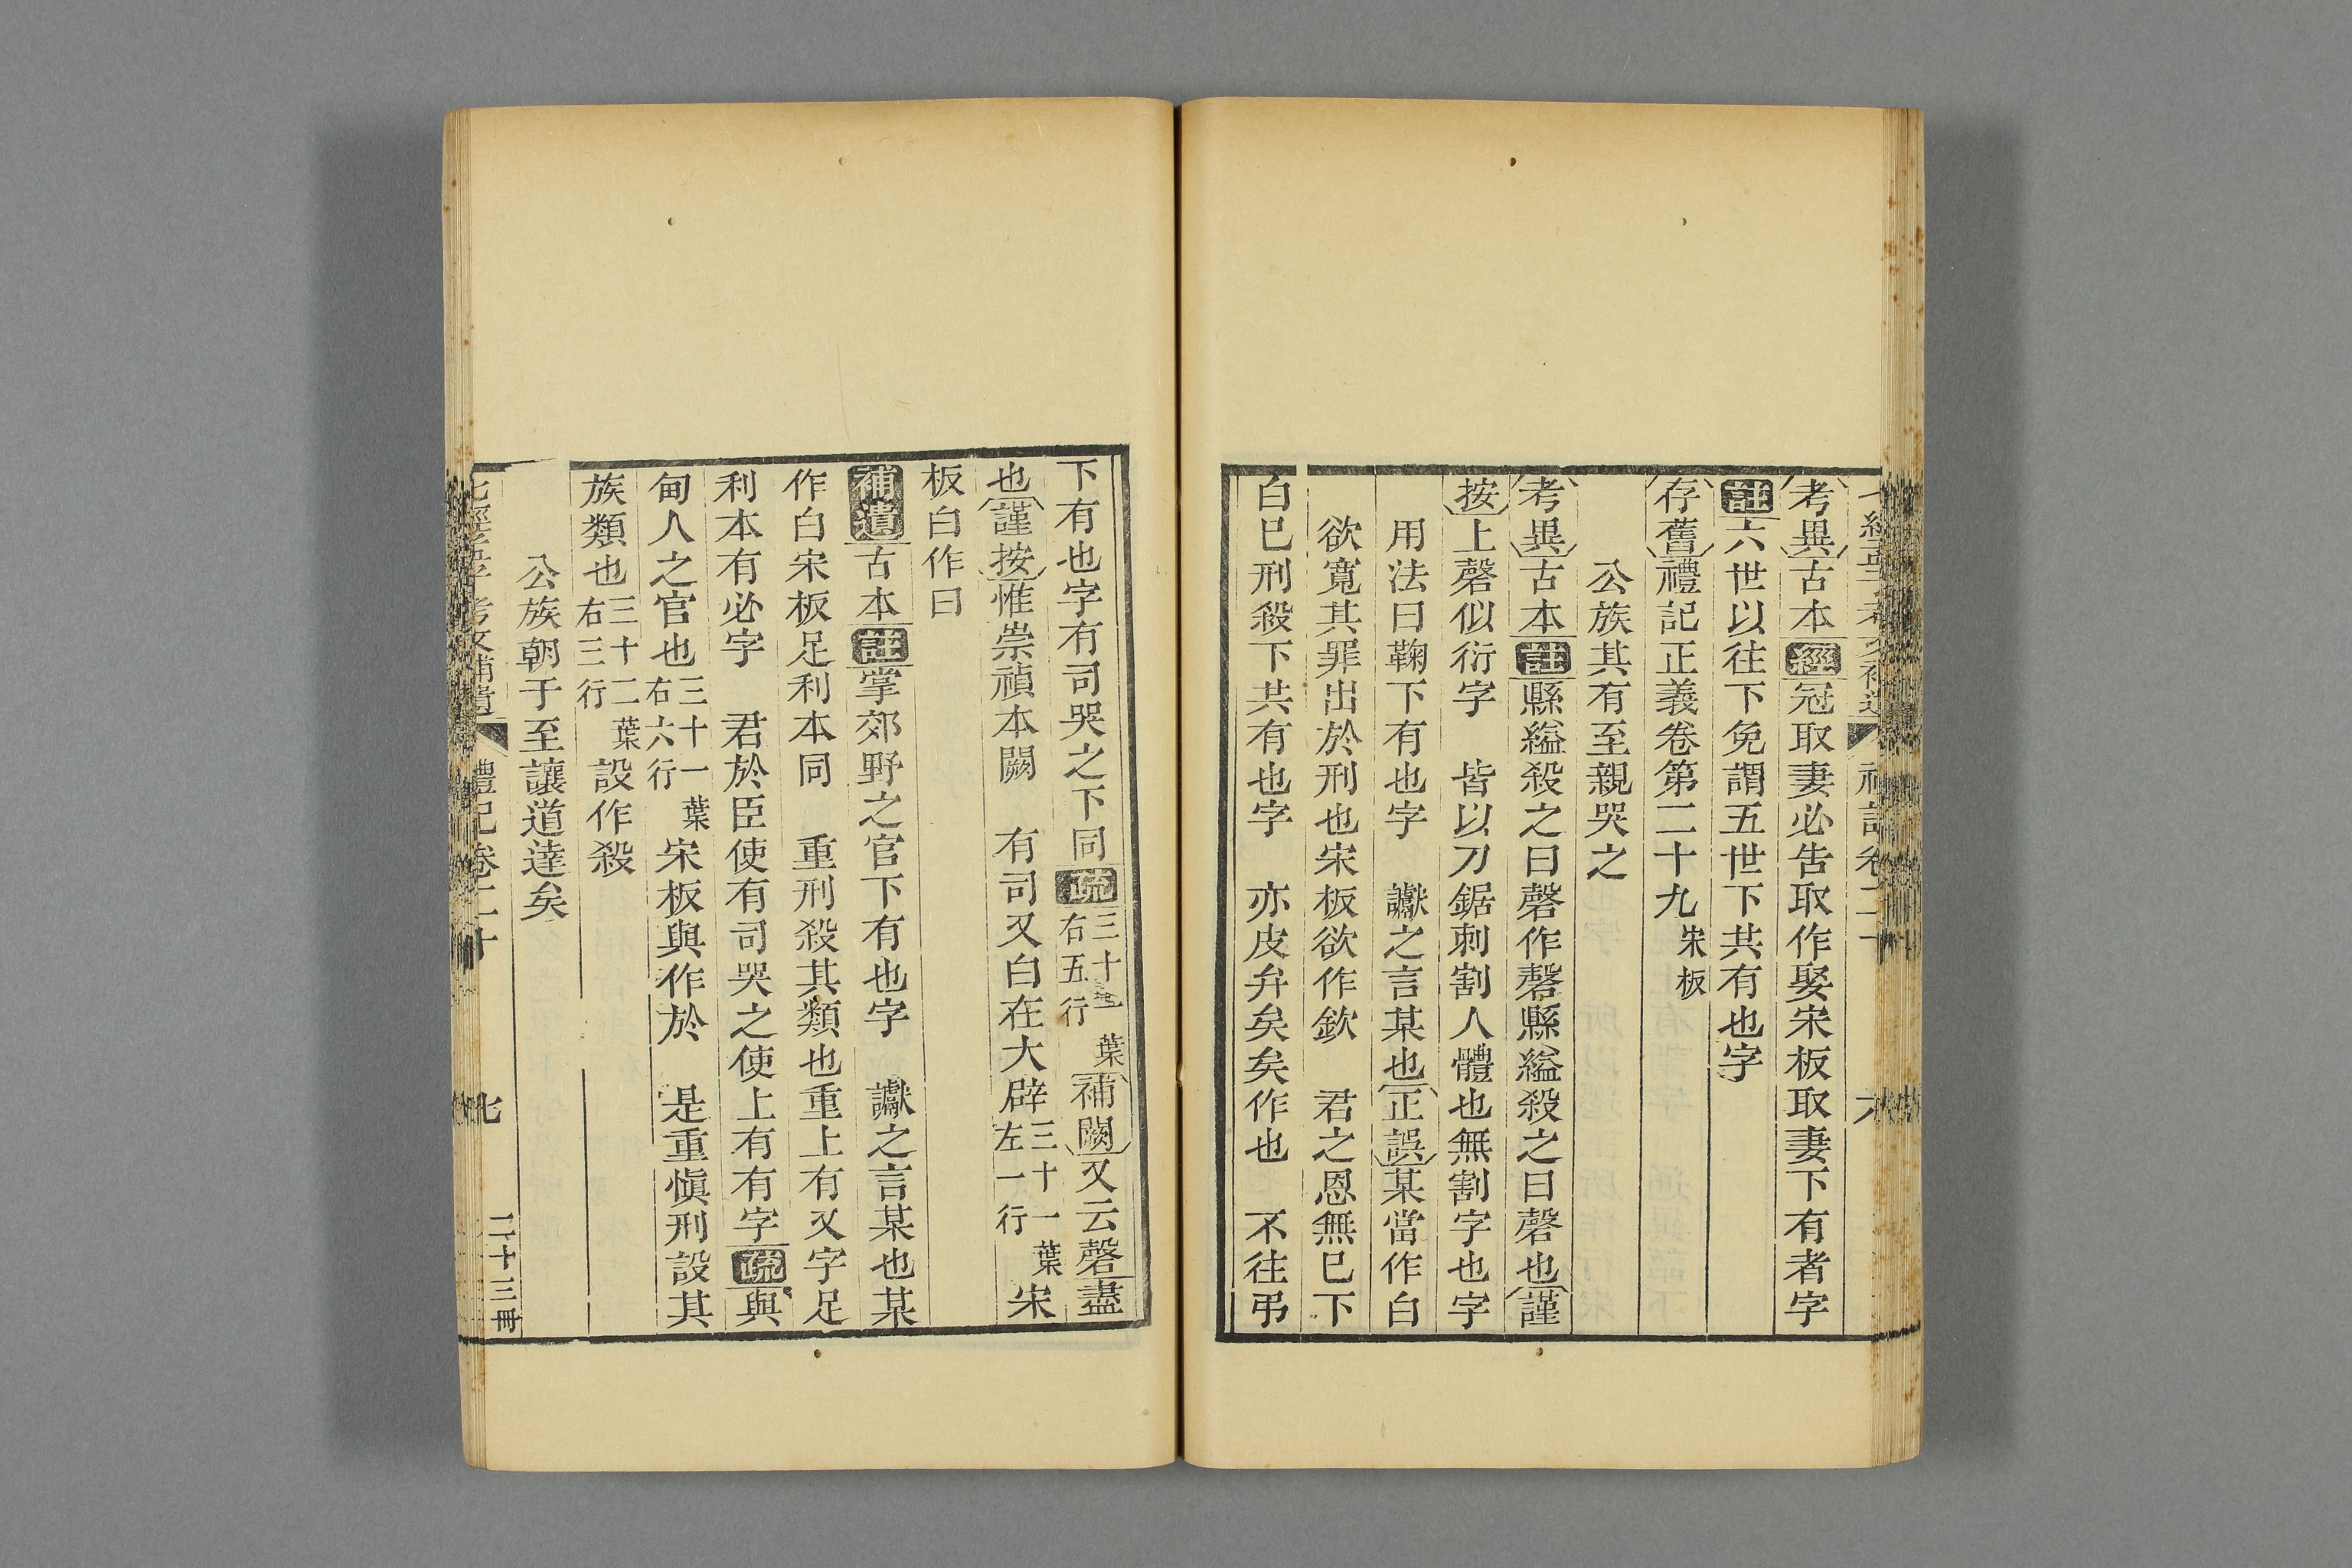 考異古本經冠取妻必告取作娶宋板取妻下有者字
註六世以往下免謂五世下共有也字
存舊禮記正義卷第二十九宋板
公族其有至親哭之
考異古本註縣縊殺之曰磬作磬縣縊殺之曰磬也謹
按上磬似衍字　皆以刀鋸刺割人體也無割字也字
用法曰鞠下有也字　讞之言某也正誤某當作白
欲寬其罪出於刑也宋板欲作欽　君之恩無已下
白已刑殺下共有也字　亦皮弁矣矣作也　不往弔
下有也字有司哭之下同疏三十葉右五行補闕又云磬盡
也謹按惟崇禎本闕　有司又白在大辟三十一葉左一行宋
板白作曰
補遺古本註掌郊野之官下有也字　讞之言某也某
作白宋板足利本同　重刑殺其類也重上有又字足
利本有必字　君於臣使有司哭之使上有有字疏與
甸人之官也三十一葉右六行宋板與作於　是重愼刑設其
族類也三十二葉右三行設作殺
公族朝于至讓道達矣
七經孟子考文補遺　禮記卷二十　七　二十三冊